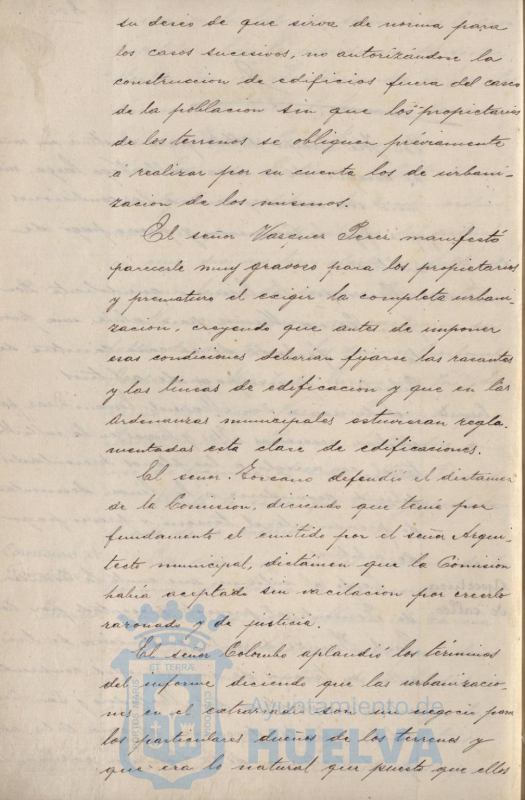 su deseo de que sirva de norma para
los casos sucesivos, no autorizándose la
construccion de edificios fuera del casco
de la poblacion sin que los propietarios
de los terrenos se obliguen préviamente
á realizar por su cuenta los de urbani-
zacion de los mismos.
El señor Vazquez Perez manifestó
parecerle muy gravoso para los propietarios
y prematuro el exigir la completa urbani-
zacion, creyendo que antes de imponer
esas condiciones deberian fijarse las rasantes
y las líneas de edificacion y que en las
Ordenanzas municipales estuvieran regla-
mentadas esta clase de edificaciones.
El señor defendió el dictámen
de la Comision, diciendo que tenia por
fundamento el emitido por el señor Arqui-
tecto municipal, dictámen que la Comision
habia aceptado sin vacilacion por creerlo
razonado y de justicia.
El señor Colombo aplaudió los términos
del informe diciendo que las urbanizacio-
nes en el extraradio son un negocio para
los particulares dueños de los terrenos y
que era lo natural que puesto que ellos
Ayuntamiento de
HUELVA